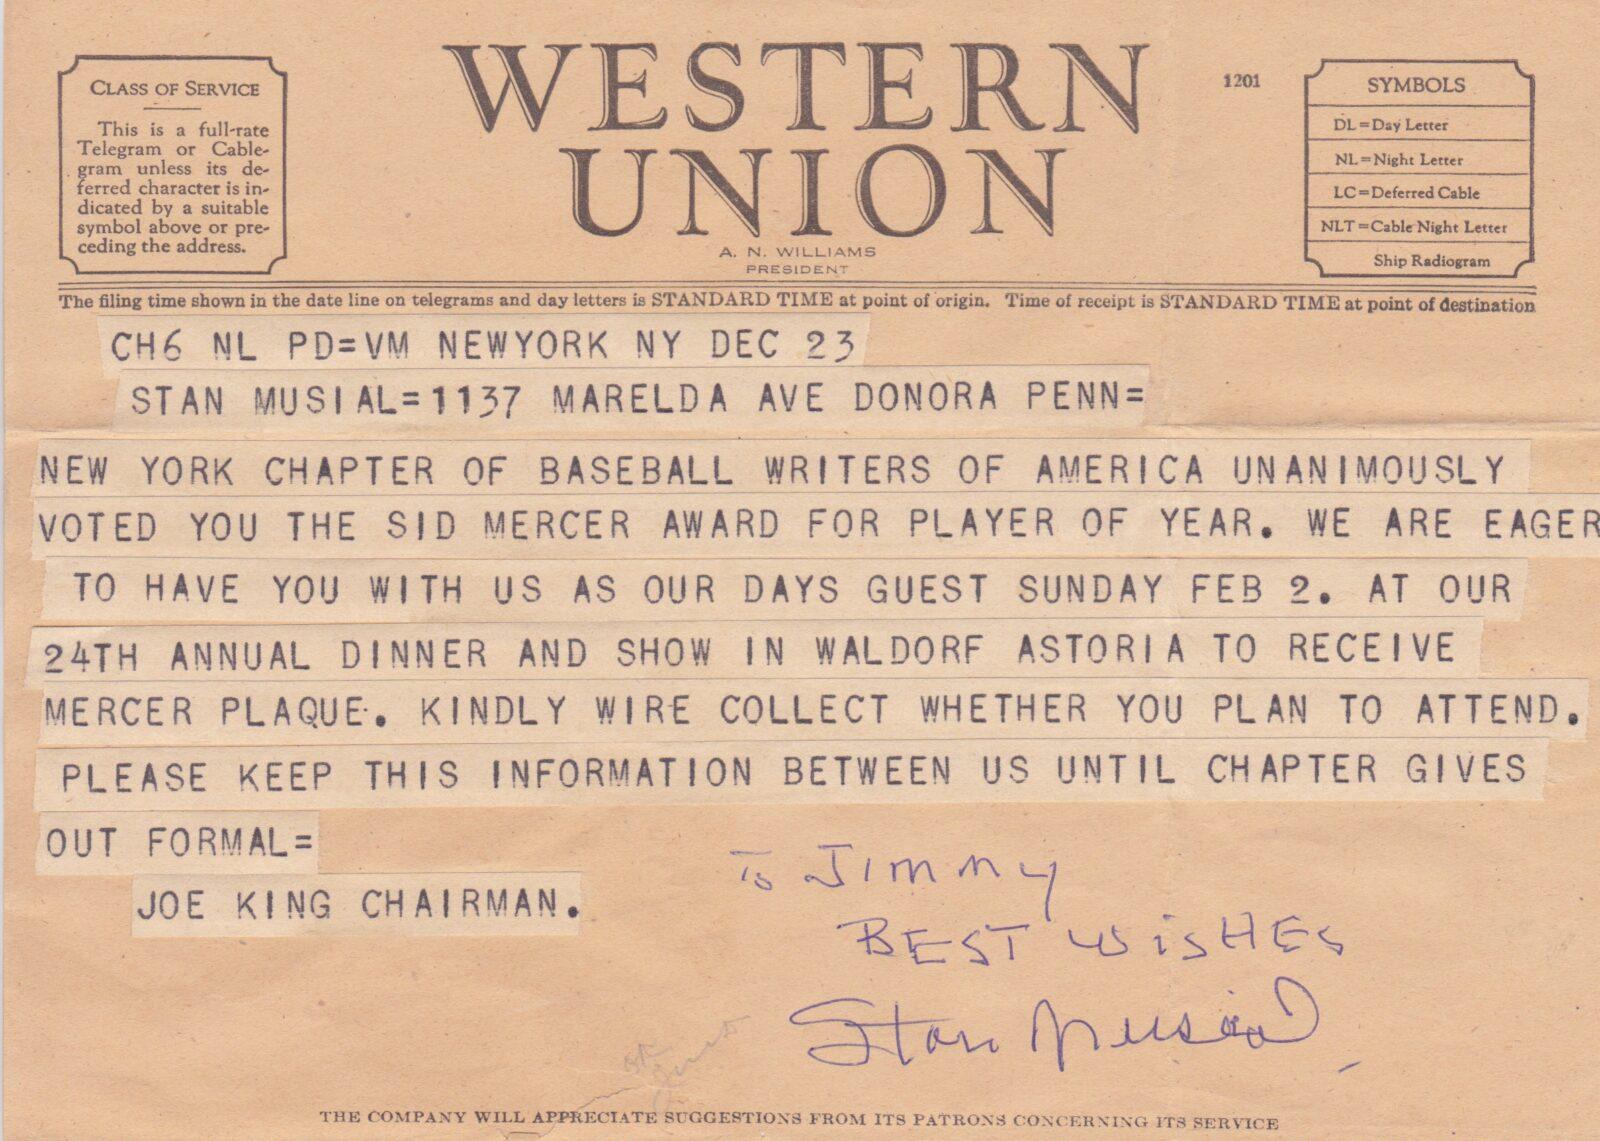 CLASS OF SERVICE
This is a full-rate
Telegram or Cable-
gram unless its de-
ferred character is in-
dicated by a suitable
symbol above or pre-
ceding the address.
WESTERN
UNION
A. N. WILLIAMS
PRESIDENT
1201
SYMBOLS
DL=Day Letter
NL=Night Letter
LC=Deferred Cable
NLT=Cable Night Letter
Ship Radiogram
The filing time shown in the date line on telegrams and day letters is STANDARD TIME at point of origin. Time of receipt is STANDARD TIME at point of destination
CH6 NL PD=VM NEWYORK NY DEC 23
STAN MUSIAL=1137 MARELDA AVE DONORA PENN=
NEW YORK CHAPTER OF BASEBALL WRITERS OF AMERICA UNANIMOUSLY
VOTED YOU THE SID MERCER AWARD FOR PLAYER OF YEAR. WE ARE EAGER
TO HAVE YOU WITH US AS OUR DAYS GUEST SUNDAY FEB 2. AT OUR
24TH ANNUAL DINNER AND SHOW IN WALDORF ASTORIA TO RECEIVE
MERCER PLAQUE. KINDLY WIRE COLLECT WHETHER YOU PLAN TO ATTEND.
PLEASE KEEP THIS INFORMATION BETWEEN US UNTIL CHAPTER GIVES
OUT FORMAL=
JOE KING CHAIRMAN.
To JIMMY
BEST WISHES
Stan Musial
THE COMPANY WILL APPRECIATE SUGGESTIONS FROM ITS PATRONS CONCERNING ITS SERVICE